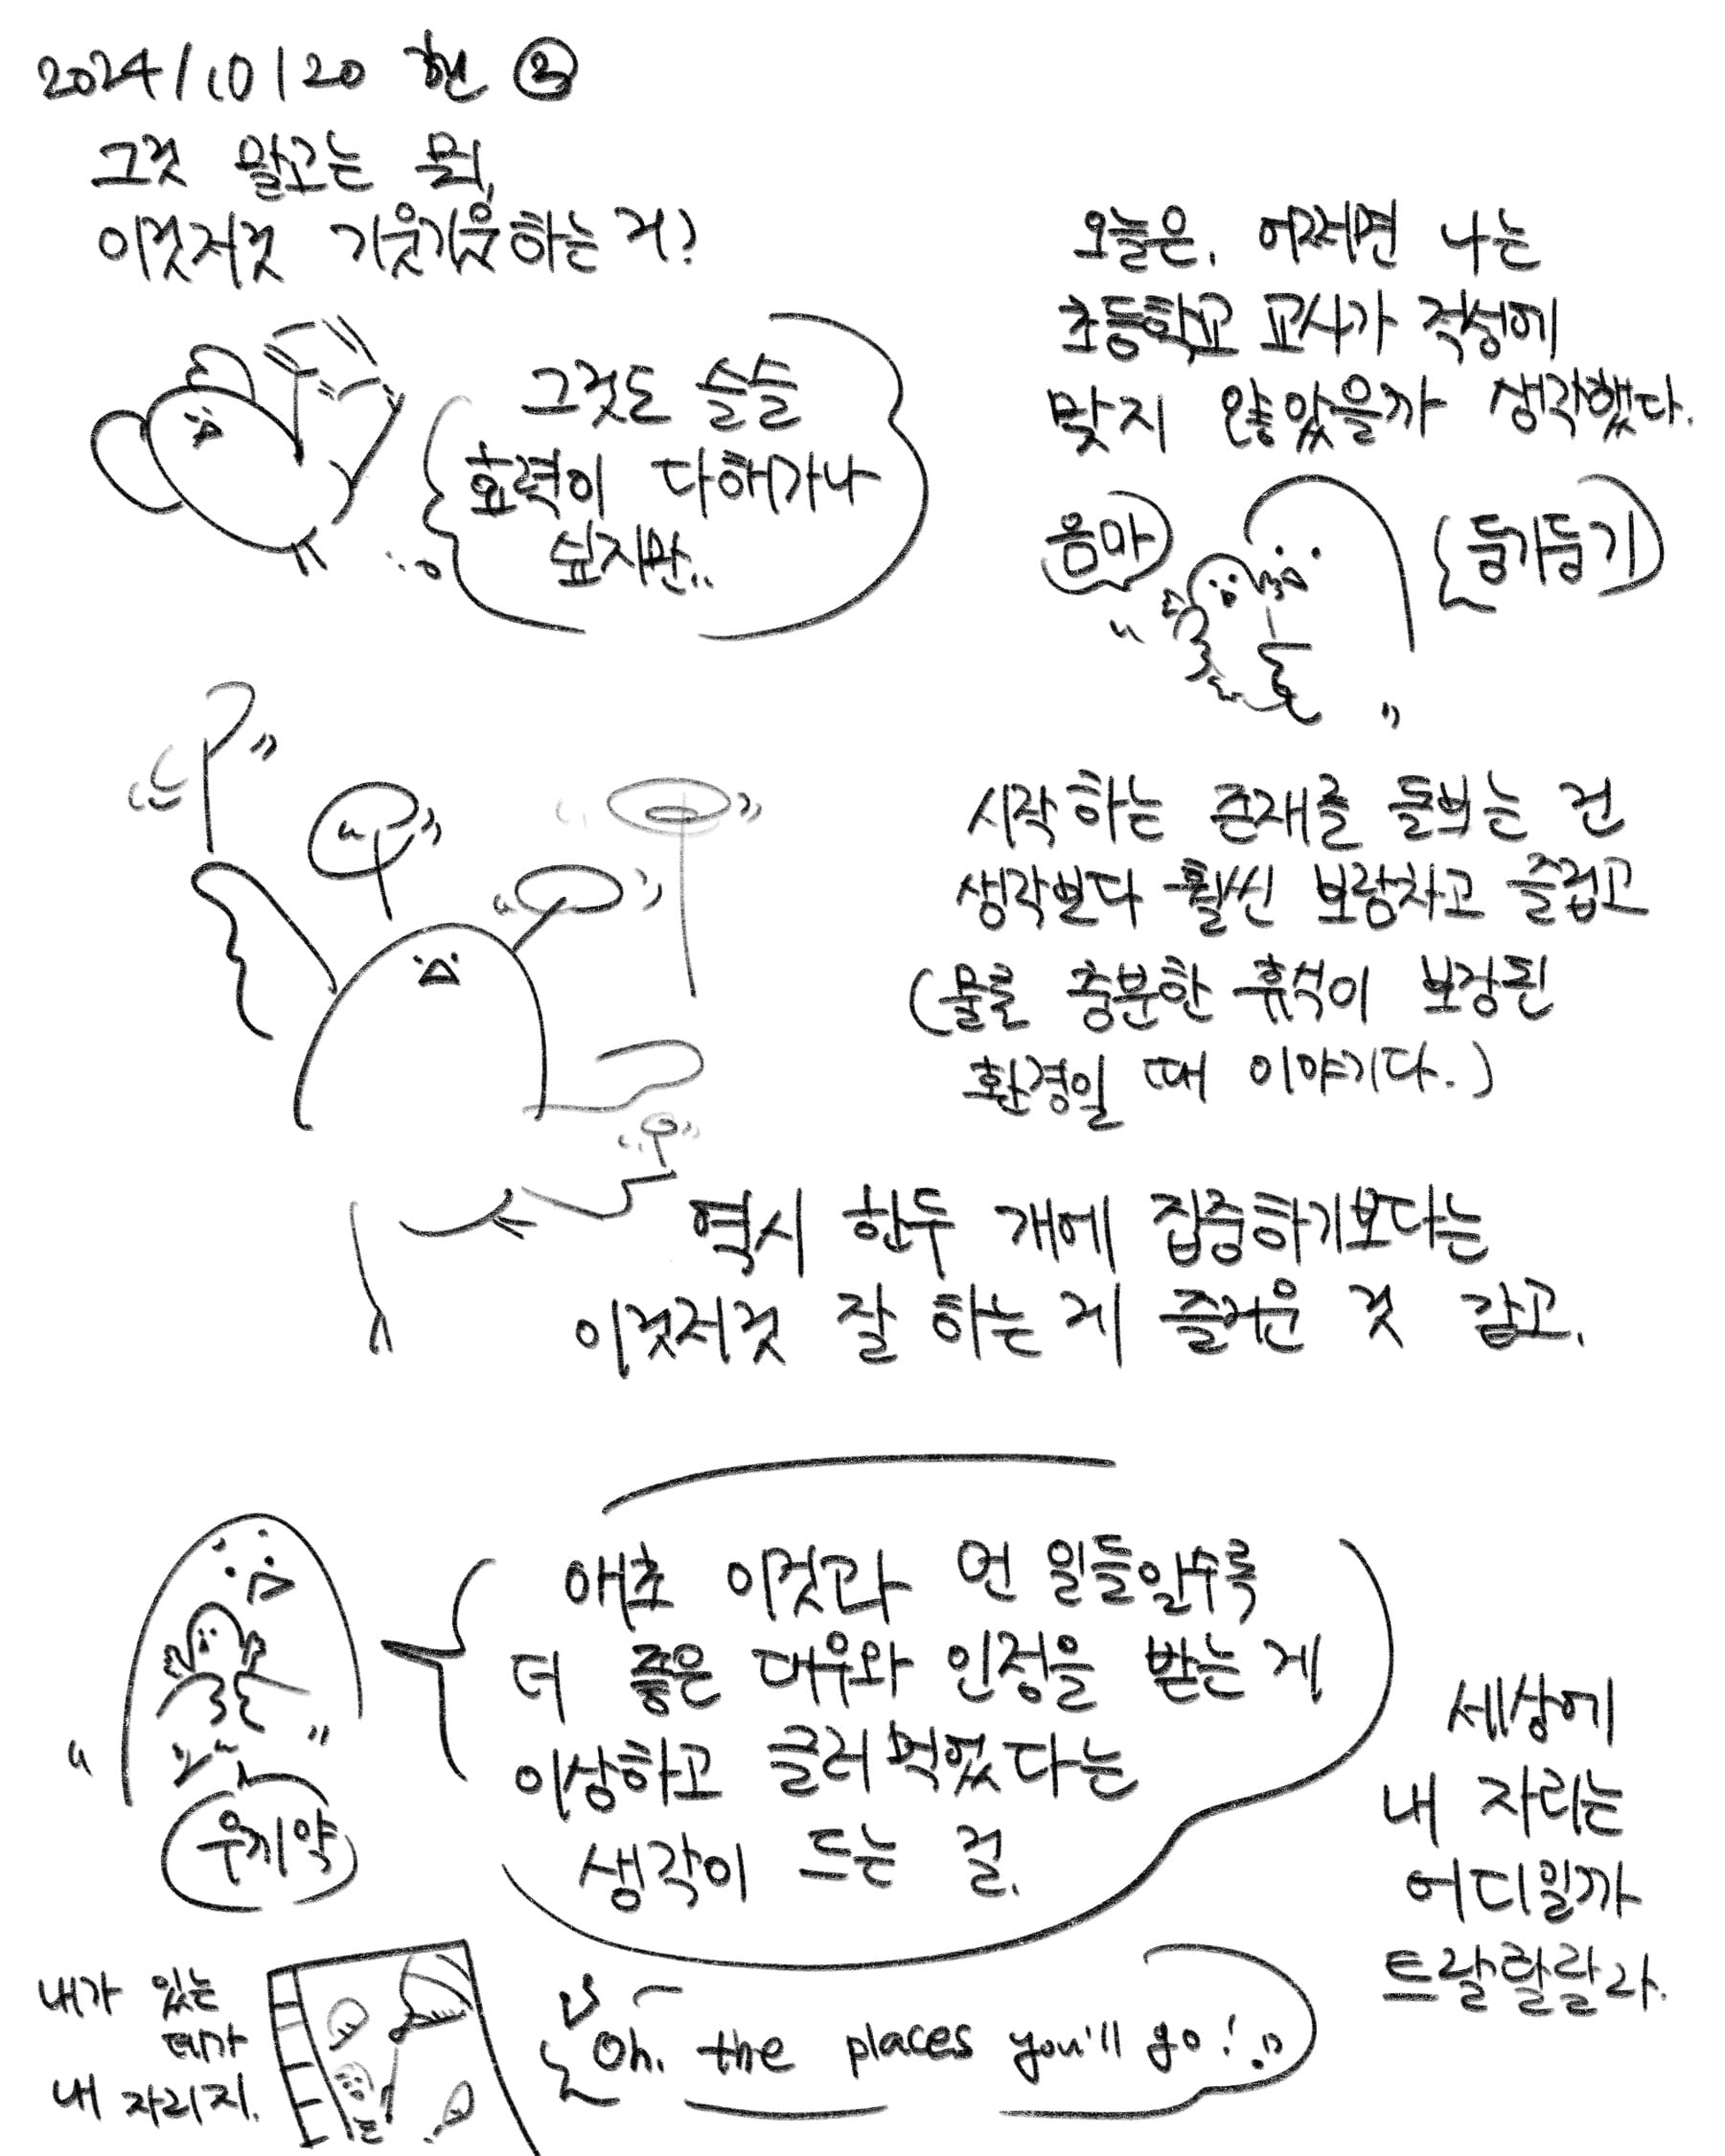 2024/10/20 현 ③
그것 말고는 뭐,
이것저것 기웃기웃하는 거?
그것도 슬슬
효력이 다해가나
싶지만..
오늘은, 어쩌면 나는
초등학교 교사가 적성에
맞지 않았을까 생각했다.
음마
둥기둥기
시작하는 존재를 돌보는 건
생각보다 훨씬 보람차고 즐겁고
(물론 충분한 휴식이 보장된
환경일 때 이야기다.)
역시 한두 개에 집중하기보다는
이것저것 잘 하는 게 즐거운 것 같고.
애초 이것과 먼 일들일수록
더 좋은 대우와 인정을 받는 게
이상하고 글러먹었다는
생각이 드는 걸.
우끼약
세상에
내 자리는
어디일까
트랄랄랄라.
내가 있는
데가
내 자리지.
Oh, the places you'll go!